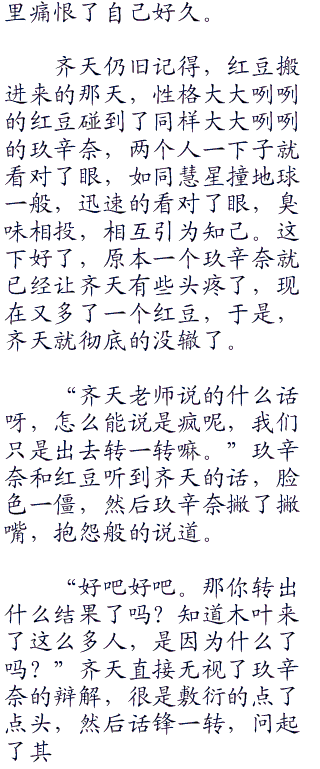 里痛恨了自己好久。
齐天仍旧记得，红豆搬
进来的那天，性格大大咧咧
的红豆碰到了同样大大咧咧
的玖辛奈，两个人一下子就
看对了眼，如同慧星撞地球
一般，迅速的看对了眼，臭
味相投，相互引为知己。这
下好了，原本一个玖辛奈就
已经让齐天有些头疼了，现
在又多了一个红豆，于是，
齐天就彻底的没辙了。
“齐天老师说的什么话
呀，怎么能说是疯呢，我们
只是出去转一转嘛。”玖辛
奈和红豆听到齐天的话，脸
色一僵，然后玖辛奈撇了撇
嘴，抱怨般的说道。
“好吧好吧。那你转出
什么结果了吗？知道木叶来
了这么多人，是因为什么了
吗？”齐天直接无视了玖辛
奈的辩解，很是敷衍的点了
点头，然后话锋一转，问起
了其